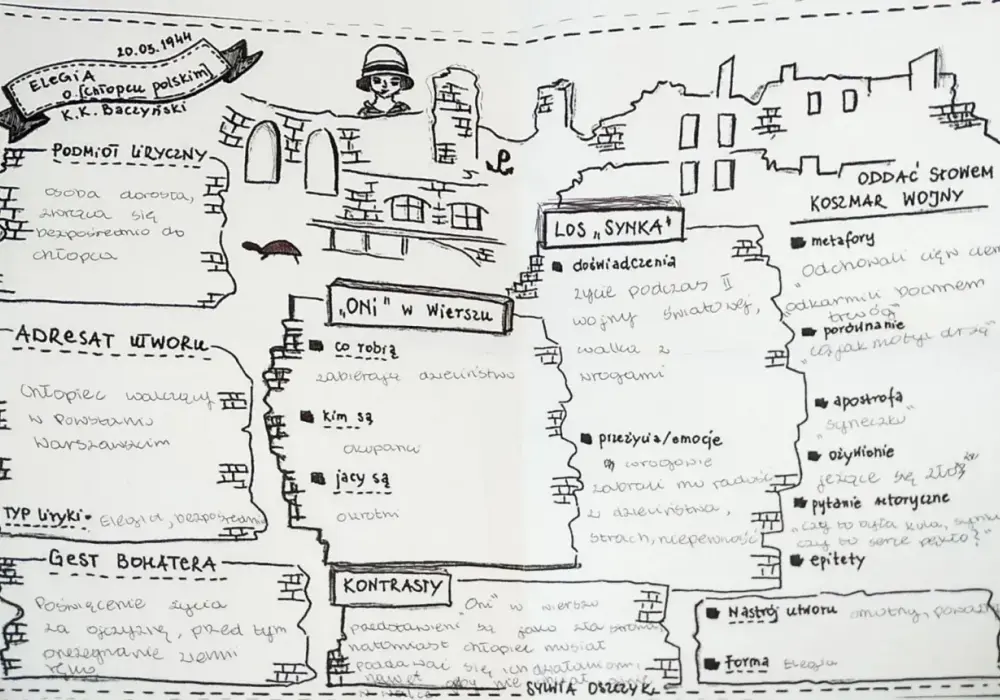 20.03.1944
ELEGIA
O [CHŁOPCU POLSKIM]
K.K. BACZYŃSKI
PODMIOT LIRYCZNY
osoba dorosła,
zwraca się
bezpośrednio do
chłopca
ADRESAT UTWORU
Chłopiec walczący
w Powstaniu
Warszawskim
TYP LIRYKI• Elegia, bezpośrednia
GEST BOHATERA
Poświęcenie życia
za ojczyznę, przed tym
przeżegnanie ziemi
ręką
„ONI" W WIERSZU
co robią
zabierają dzieciństwo
kim są
okupanci
jacy są
okrutni
KONTRASTY
„Oni" w wierszu
przedstawieni są jako zła strona
natomiast chłopiec musiał
poddawać się ich działaniom,
nawet aby nie
w walce
SYLWIA OSZCZYK
LOS „SYNKA"
doświadczenia
życie podczas II
wojny światowej,
walka z
wrogami
przeżycia/emocje
wrogowie
zabrali mu radość
z dzieciństwa,
strach, niepewność
ODDAĆ SŁOWEM
KOSZMAR WOJNY
metafory
"Odchowali cię w ciem
„odkarmili bochnem
trwóg"
porównanie
"co jak motyl drżą"
apostrofa
"syneczku"
ożywienie
jeżące się złoś
pytanie retoryczne
"czy to była kula, synku
czy to serce pękło?"
epitety
Nastrój utworu smutny, poważ
Forma Elegia